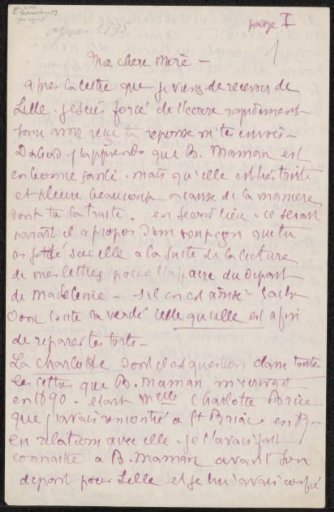 page I
1
Ma chere Mère -
après la lettre que je viens de recevoir de
Lille. je suis forcé de t'écrire rapidement
reponse
D'abord j'apprends que B. Maman est
en bonne santé. mais qu'elle est très triste
et pleure beaucoup à cause de la maniere
dont tu la traite. en second lieu. ce serait
parait il a propos d'un soupçon que tu
as jetté sur elle a la suite de la lecture
de mes lettres pour l'affaire du depart
de Madeleine - s'il en est ainsi
donc toute la verité telle qu'elle est afin
de reparer tes torts -
La Charlotte dont il est question dans toute
les lettres que B. Maman m'ecrivait
en 1890 - etant Melle Charlotte Brice
que j'avais rencontrée a St Briac en
en relations avec elle. je l'avais fait
connaitre a B. Maman avant son
depart pour Lille et je lui avais confié